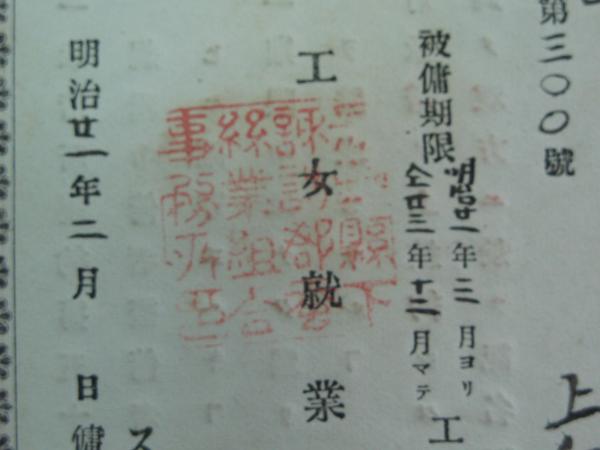 第三〇〇號
上
被傭期限
明治廿一年二月ヨリ
仝廿三年十二月マテ
工
工女就業
縣下
諏訪郡
絲業組合
事務所
ス
明治廿一年二月 日傭